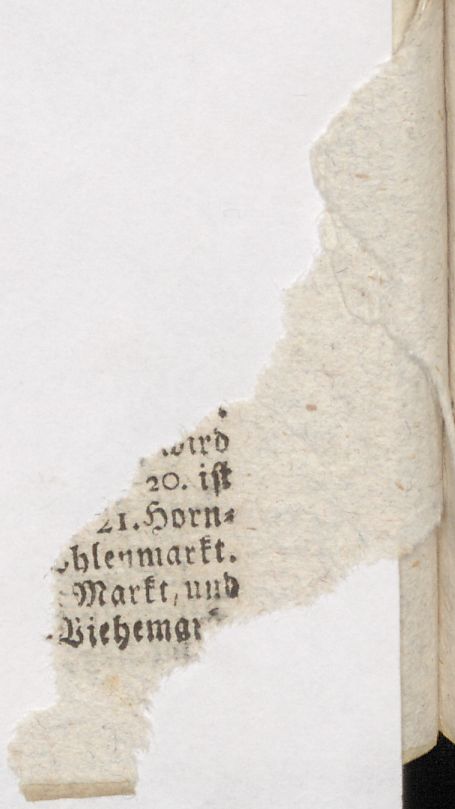 wird
20. ist
21. Horn-
ohlenmarkt.
Markt, und
Viehemar